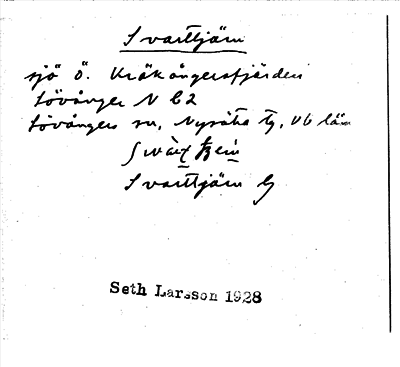 Svarttjärn
sjö Ö. Kräkångersfjärden
Lövånger N C2
Lövångers sn, Nysätra tg, Vb län
Svarttjärn G
Seth Larsson 1928